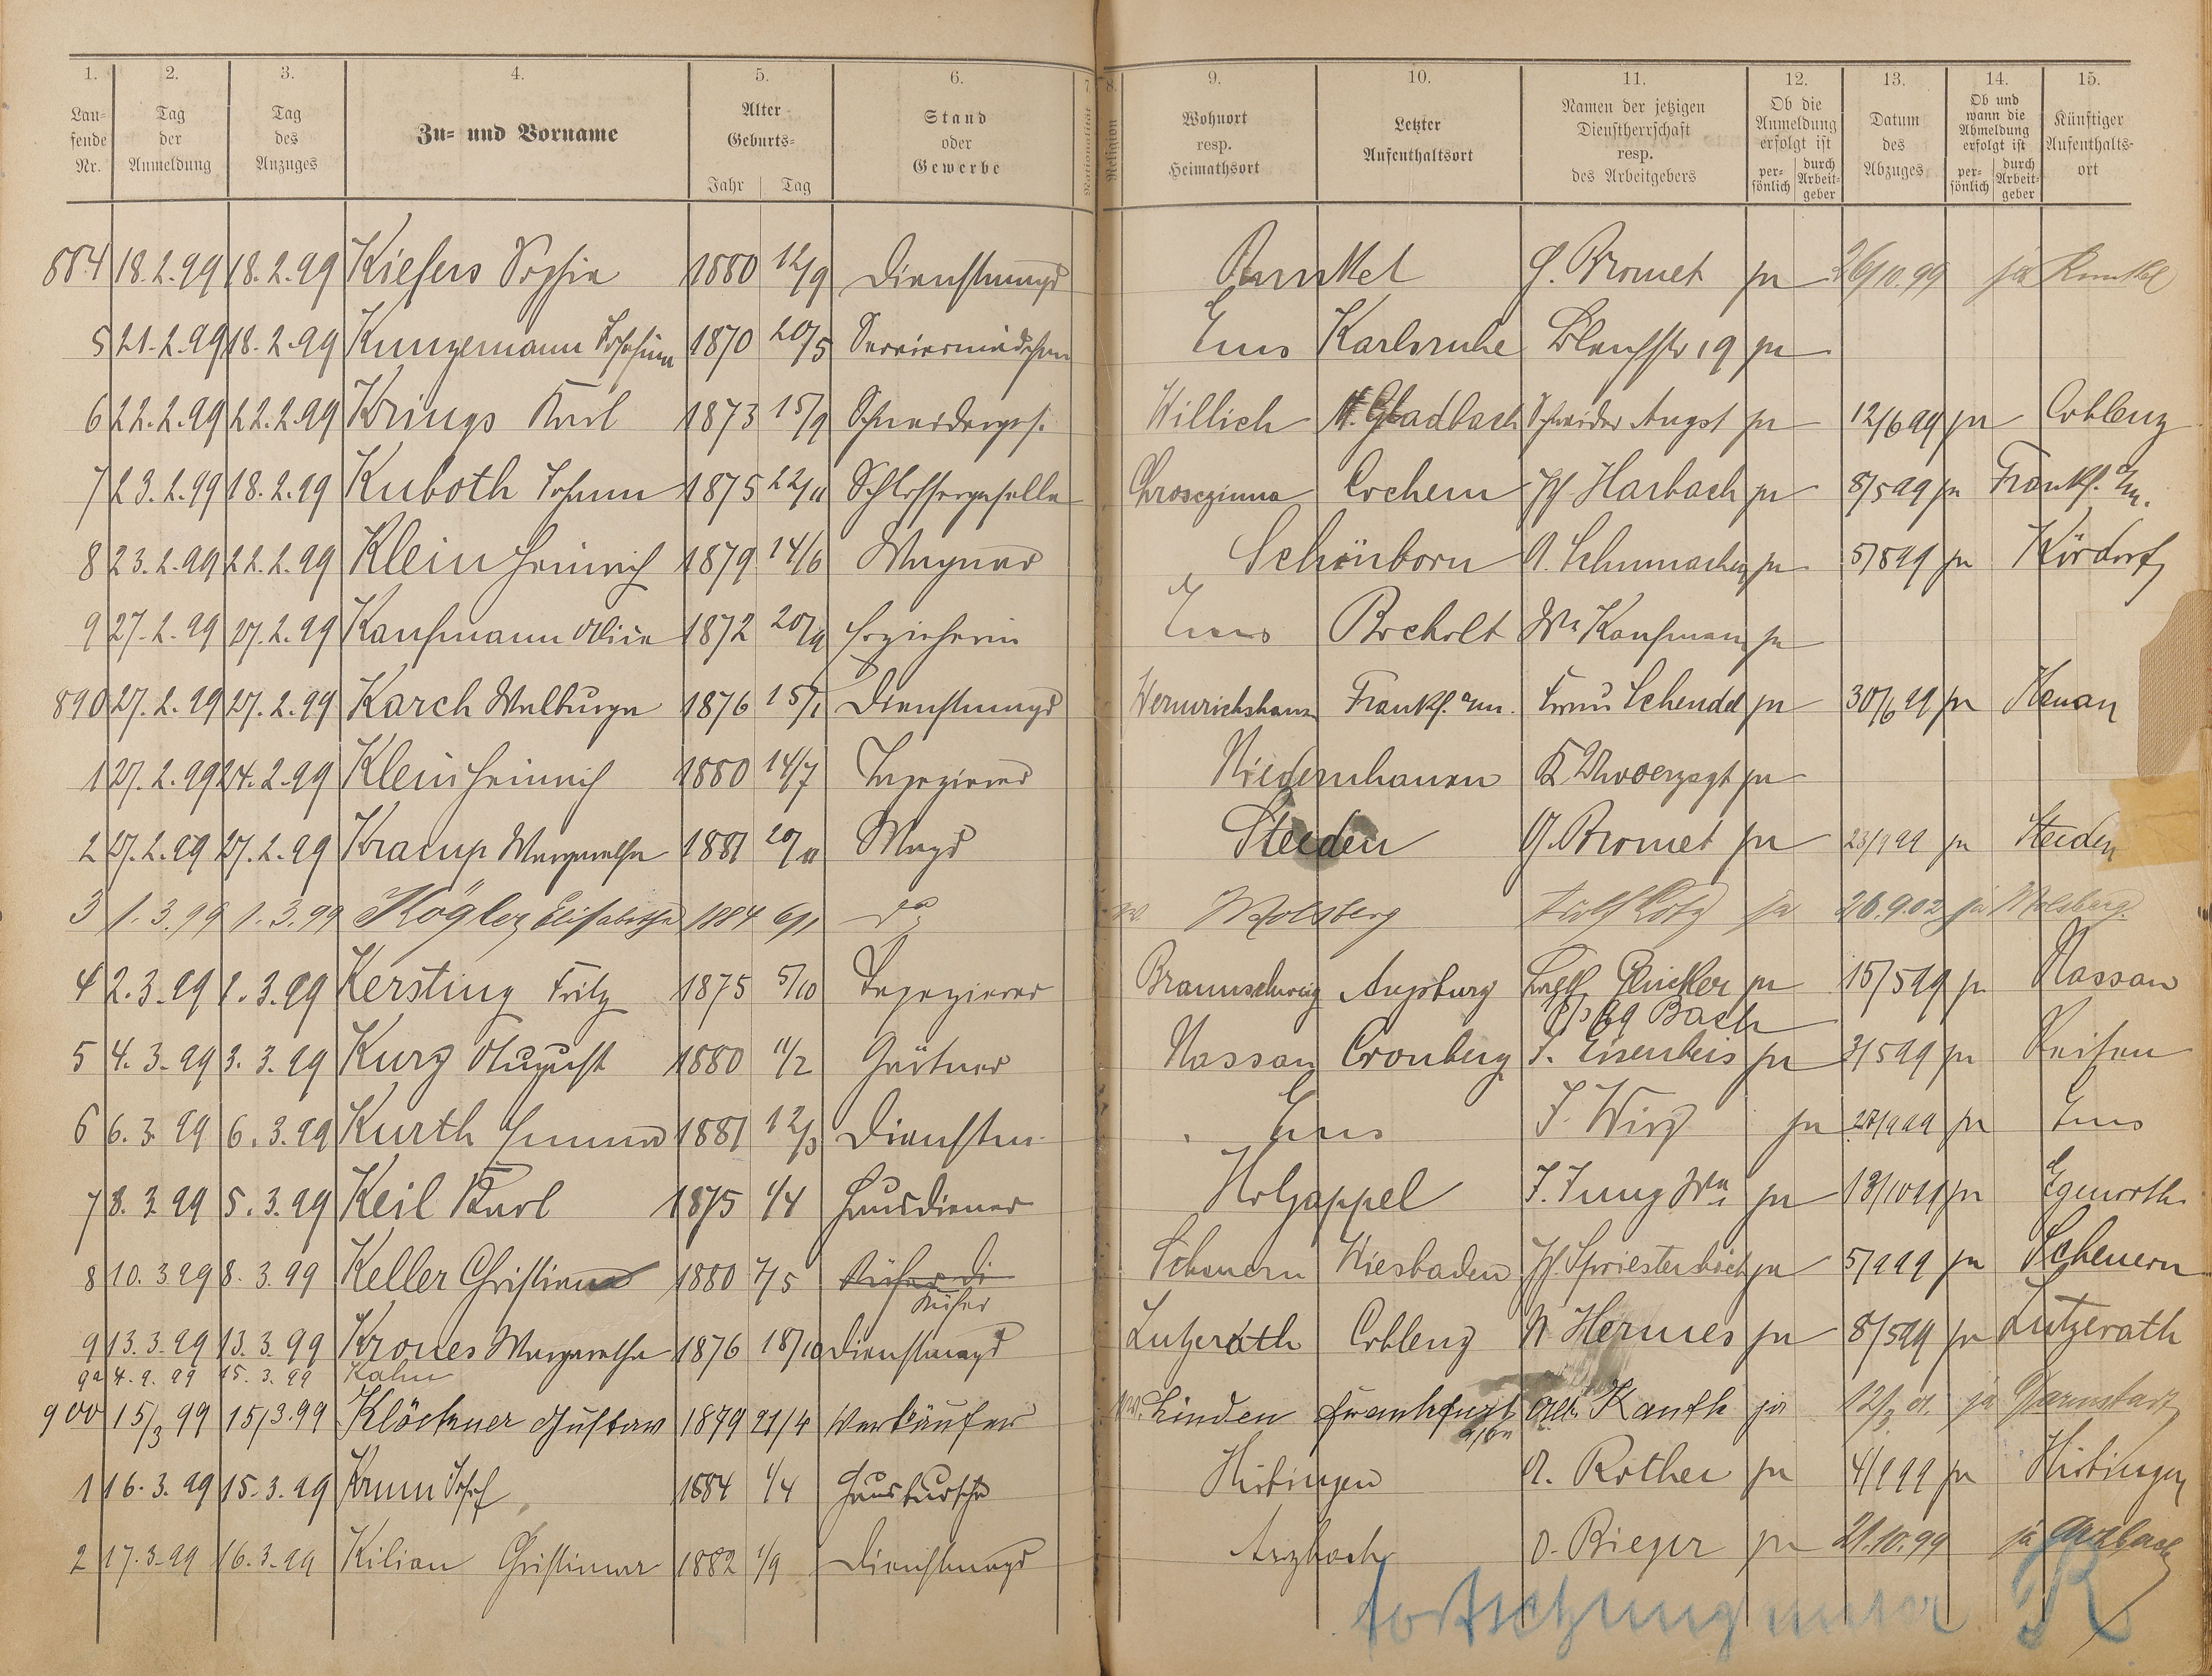 1. 2. 3. 4. 5. 6. 7. 8. 9. 10. 11. 12. 13. 14. 15.
Laufende Nr. Tag der Anmeldung Tag des Anzuges Zu- und Vorname Alter Geburts- Jahr Tag Stand oder Gewerbe Nationalität Religion Wohnort resp. Heimathsort Letzter Aufenthaltsort Namen der jetzigen Dienstherrschaft resp. des Arbeitgebers Ob die Anmeldung erfolgt ist persönlich durch Arbeitgeber Datum des Abzuges Ob und wann die Abmeldung erfolgt ist persönlich durch Arbeitgeber Künftiger Aufenthaltsort
884 18.2.99 18.2.99 Kiefers Sophie 1880 12/9 Dienstmagd Runkel G. Bromet ja 26/10.99 ja Runkel
5 21.2.99 18.2.99 Kunzemann Josefina 1870 20/5 Serviermädchen Ems Karlsruhe 19 ja
6 22.2.99 22.2.99 Krings Karl 1873 15/9 Schneiderges. Willich M. Gladbach Schneider Augst ja 12/6 99 ja Coblenz
7 23.2.99 18.2.99 Kuboth Johann 1875 22/11 Schlossergeselle Cochem Harbach ja 8/5 99 ja Frankf. a/m.
8 23.2.99 22.2.99 Klein Heinrich 1879 14/6 Wagner Schönborn A. Schumacher ja 5/8 99 ja Kördorf
9 27.2.99 27.2.99 Kaufmann Alice 1872 Erzieherin Ems Bocholt Ww Kaufmann ja
890 27.2.99 27.2.99 Karch Walburga 1876 15/1 Dienstmagd Frankf. a/m. Schendel ja 30/6 99 ja Hanau
1 27.2.99 24.2.99 Klein Heinrich 1880 14/7 Tapezierer Niedernhausen ja
2 27.2.99 27.2.99 Kramp Margarethe 1881 20/11 Magd Steeden G. Bromet ja 23/9 99 ja Steeden
3 1.3.99 1.3.99 Kögler Elisabetha 1884 6/1 do Molsberg Adolf Lotz ja 26.9.02 ja Molsberg
4 2.3.99 1.3.99 Kersting Fritz 1875 5/10 Tapezierer Braunschweig Augsburg ja 15/5 99 ja Nassau
Bach
5 4.3.99 3.3.99 Kurz August 1880 11/2 Gärtner Nassau Cronberg J. Eisenbeis ja 3/5 99 ja
6 6.3.99 6.3.99 Kurth Emma 1881 12/3 Dienstm. Ems J. Wirz ja 27/9 99 ja Ems
7 8.3.99 5.3.99 Keil Karl 1875 1/4 Hausdiener Holzappel J. Jung Ww ja 13/10 99 ja Egenroth
8 10.3.99 8.3.99 Keller Christian 1880 7/5 Küfer Scheuern Wiesbaden Spriestersbach ja 5/9 99 ja Scheuern
9 13.3.99 13.3.99 Krones Margarethe 1876 18/10 Dienstmagd Lutzerath Coblenz N. Hermes ja 8/5 99 ja Lutzerath
9a 4.9.99 15.3.99 Kahn
900 15/3 99 15/3.99 Klöckner Gustav 1879 21/4 Verkäufer Linden Frankfurt a/m Kauth ja 12/3 01. ja Darmstadt
1 16.3.99 15.3.99 Krum Josef 1884 1/4 Hausbursche Hübingen A. Rother ja 4/9 99 ja Hübingen
2 17.3.99 16.3.99 Kilian Christina 1882 1/9 Dienstmagd Arzbach O. Bieger ja 21.10.99 ja Arzbach
Fortsetzung unter R